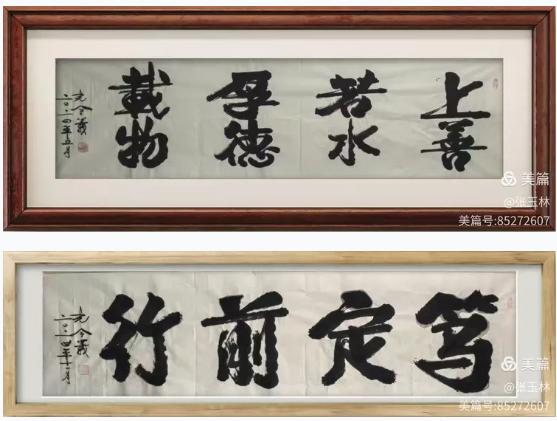 上善
若水
厚德
載物
二〇二四年五月
美篇
@张玉林
美篇号:85272607
笃定前行
美篇
@张玉林
美篇号:85272607